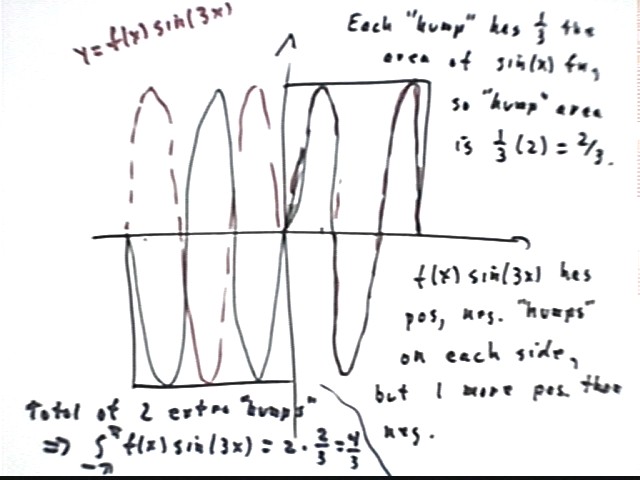 y = f(x) sin(3x)
Each "hump" has 1/3 the
area of sin(x) fn,
so "hump" area
is 1/3 (2) = 2/3.
f(x) sin(3x) has
pos, neg. "humps"
on each side,
but 1 more pos. than
neg.
Total of 2 extra "humps"
⇒ ∫_{-π}^{π} f(x) sin(3x) = 2 · 2/3 = 4/3